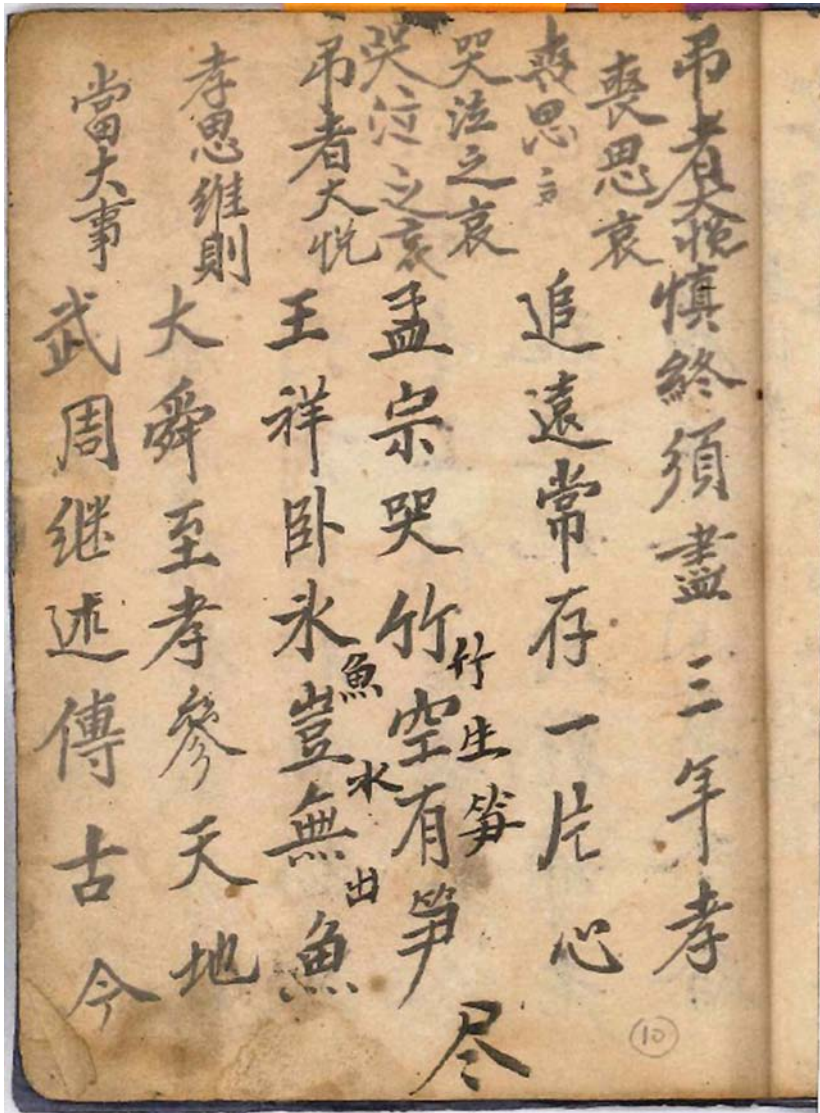 吊者大悅
慎終須盡三年孝
喪思哀
喪思
追遠常存一片心
哭泣之哀
竹生笋
哭泣之哀
孟宗哭竹空有笋
尽
吊者大悅
魚水出
王祥卧氷豈無魚
孝思維則
大舜至孝參天地
當大事
武周继述傳古今
10